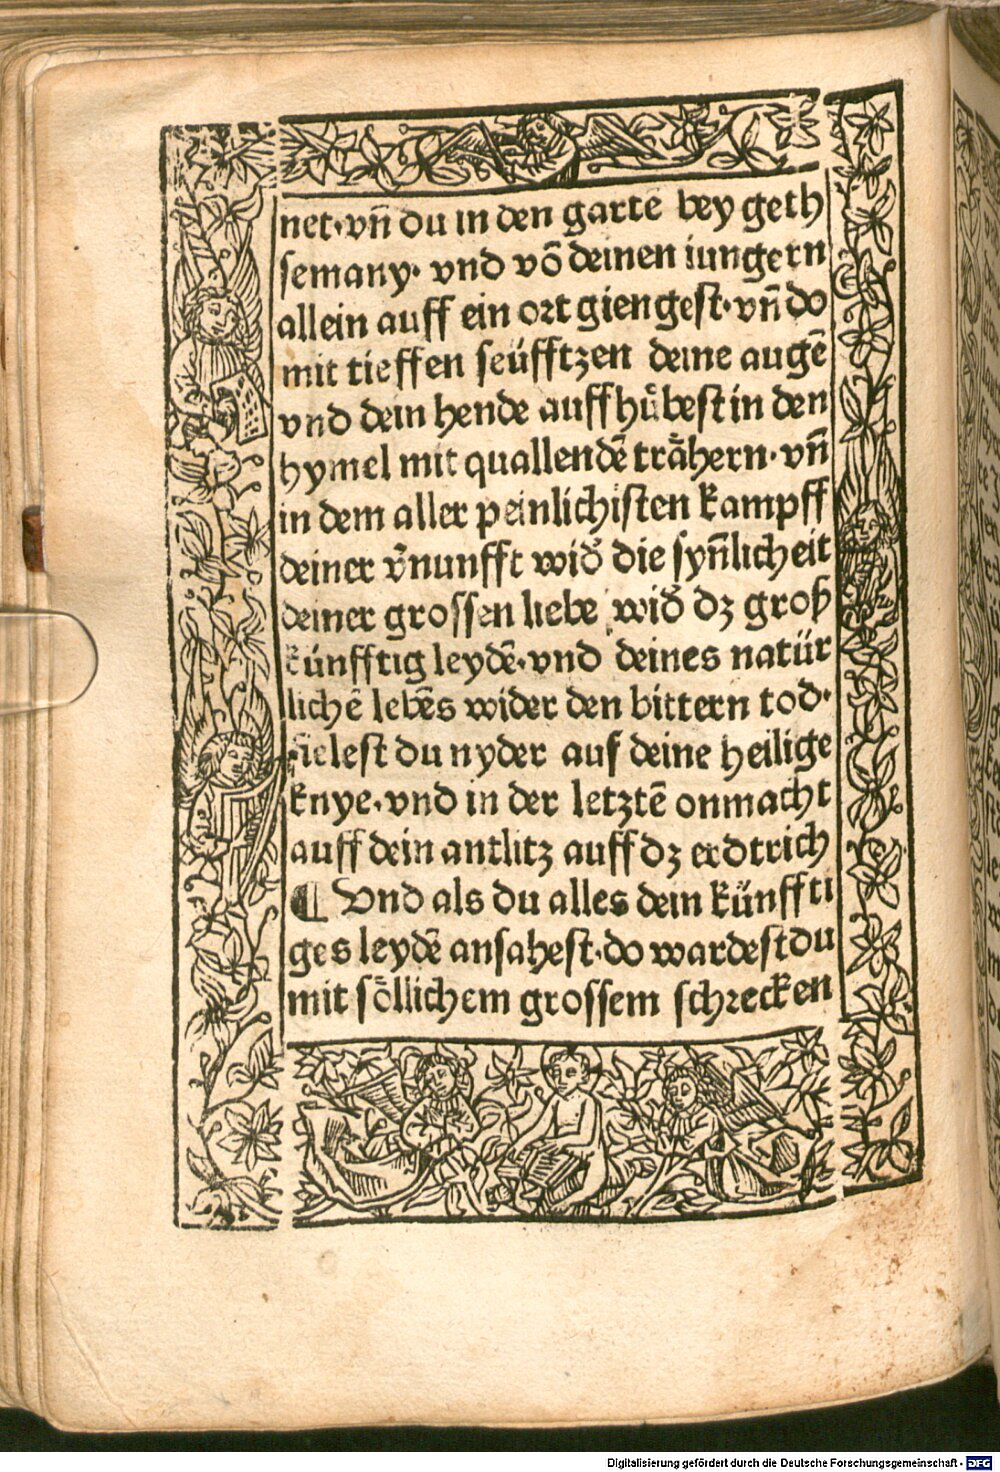 net·vn̄ du in den gartē bey geth
semany· vnd vō deinen iungern
allein auff ein ort giengest·vn̄ do
mit tieffen seüfftzen deine augē
vnd dein hende auffhuͤbest in den
hymel mit quallendē traͤhern·vn̄
in dem aller peinlichisten kampff
deiner v̄nunfft wid̄ die syn̄licheit
deiner grossen liebe wid̄ dz groß
künfftig leydē·vnd deines natür
lichē lebēs wider den bittern tod·
fielest du nyder auf deine heilige
knye·vnd in der letztē onmacht
auff dein antlitz auff dz erdtrich
¶ Vnd als du alles dein künffti
ges leydē ansahest·do wardest du
mit soͤllichem grossem schrecken
Digitalisierung gefördert durch die Deutsche Forschungsgemeinschaft - DFG